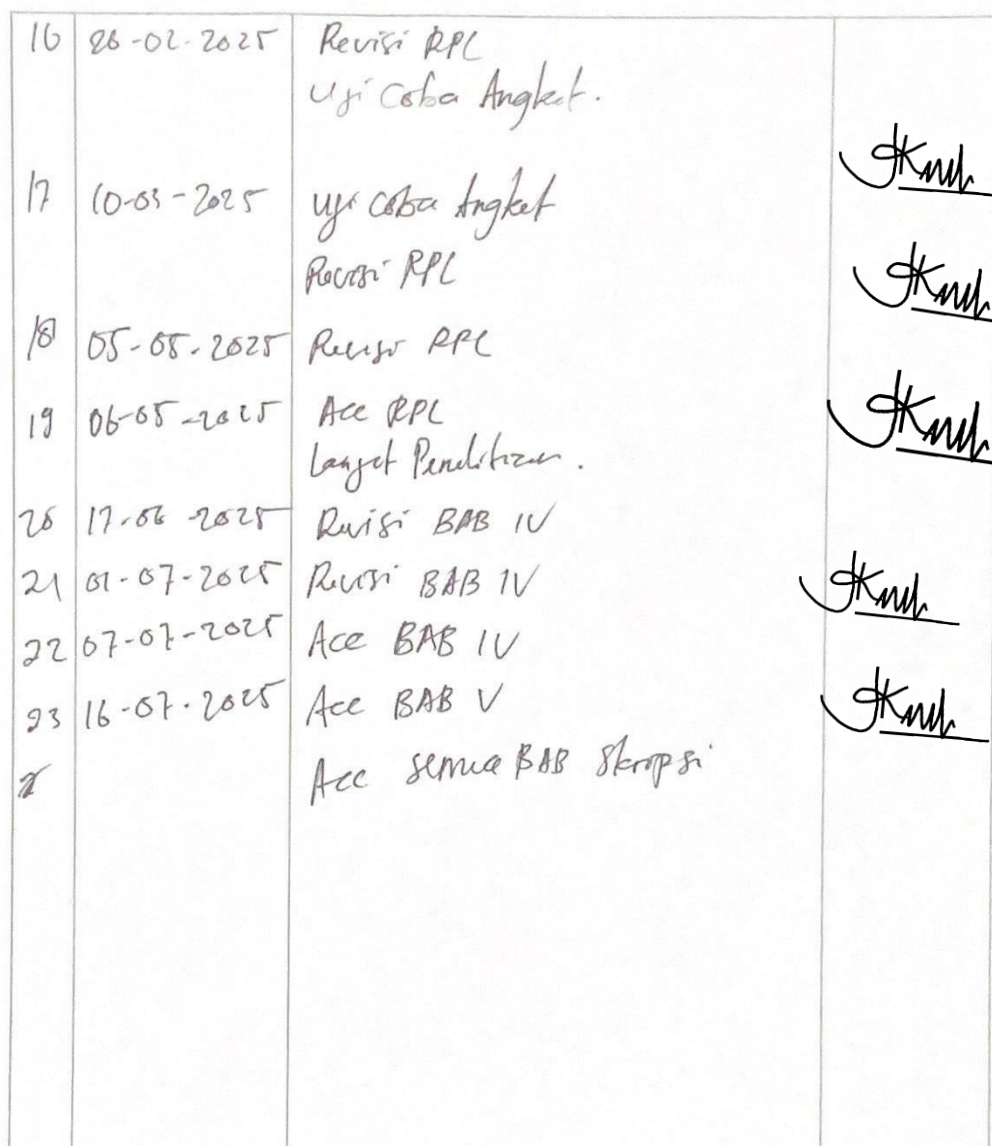 16 26-02-2025 Revisi RPL
Uji Coba Angket.
17 10-03-2025 Uji Coba Angket
Revisi RPL
18 05-05-2025 Revisi RPL
19 06-05-2025 Acc RPL
Lanjut Penelitian.
20 17-06-2025 Revisi BAB IV
21 01-07-2025 Revisi BAB IV
22 07-07-2025 Acc BAB IV
23 16-07-2025 Acc BAB V
Acc semua BAB Skripsi